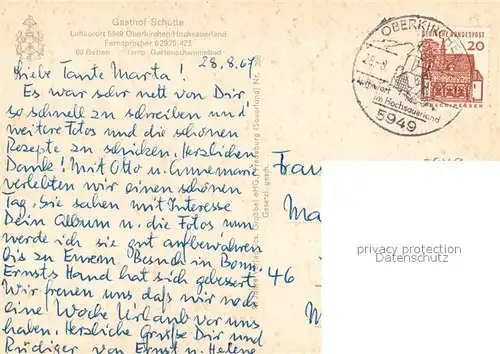 Gasthof-Schütte
Luftkurort 5949 Oberkirchen/Hochsauerland
Fernsprecher 02975/423
60 Betten Temp. Gartenschwimmbad
28.8.67
Liebe Tante Marta!
Es war sehr nett von Dir,
so schnell zu schreiben und
weitere Fotos und die schönen
Rezepte zu schicken. Herzlichen
Dank! Mit Otto u. Annemarie
verlebten wir einen schönen
Tag. Sie sahen mit Interesse
Dein Album u. die Fotos nun
werde ich sie gut aufbewahren
bis zu Eurem Besuch in Bonn.
Ernsts Hand hat sich gebessert.
Wir freuen uns, daß wir noch
eine Woche Urlaub vor uns
haben. Herzliche Grüße Dir und
Rüdiger von Ernst u. Helene
OBERKIRCHEN
28.-8.
Luftkurort
im Hochsauerland
5949
DEUTSCHE BUNDESPOST
20
LORSCH/HESSEN
Frau
46
privacy protection
Datenschutz